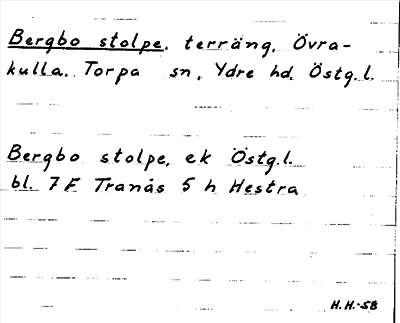 Bergbo stolpe, terräng, Övra-
kulla. Torpa sn, Ydre hd. Östg.l.
Bergbo stolpe, ek Östg.l.
bl. 7F Tranås 5 h Hestra
H.H.-58